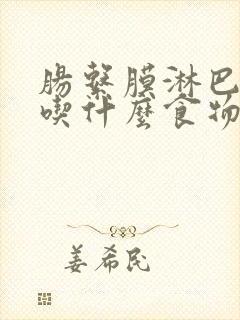 腸繫膜淋巴
喫什麼食物
姜希民